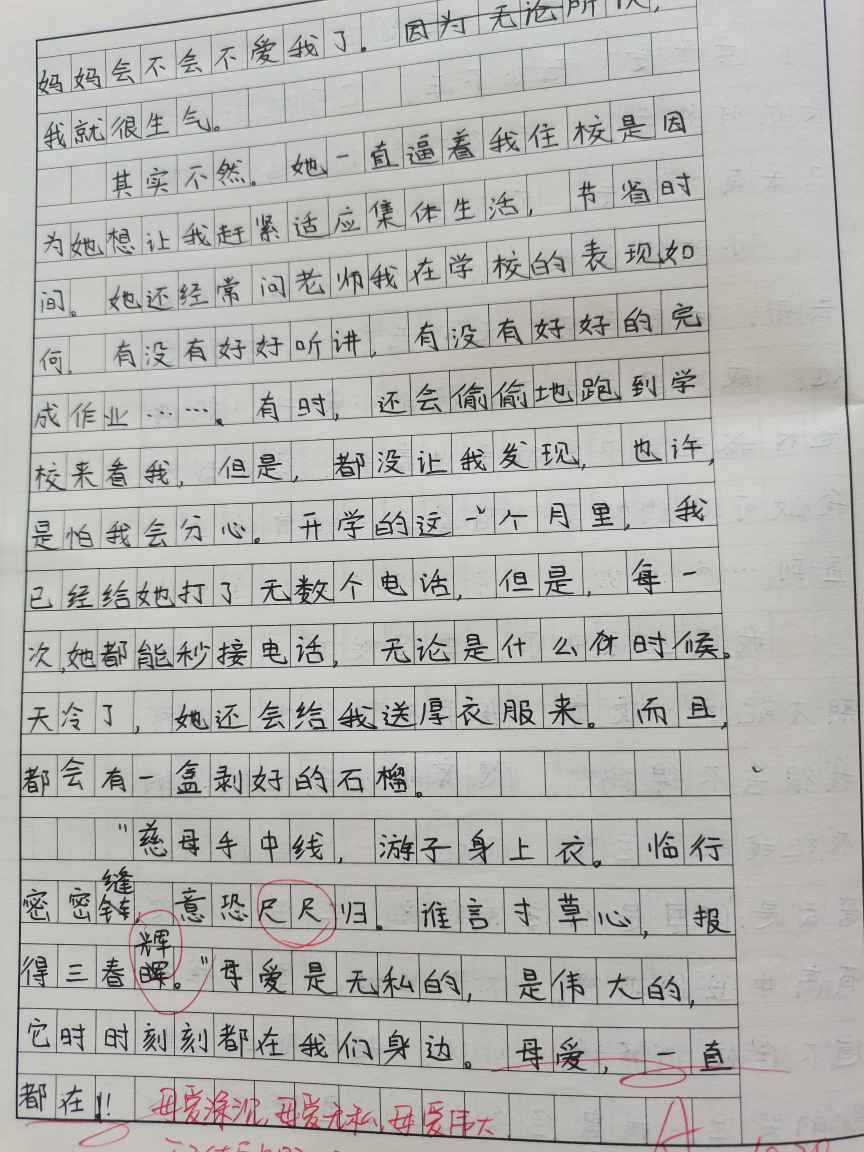 妈妈会不会不爱我了。因为无论所以,
我就很生气。
其实不然。她一直逼着我住校是因
为她想让我赶紧适应集体生活,节省时
间。她还经常问老师我在学校的表现如
何.有没有好好听讲,有没有好好的完
成作业……。有时,还会偷偷地跑到学
校来看我,但是,都没让我发现,也许,
是怕我会分心。开学的这一个月里,我
已经给她打了无数个电话,但是,每一
次,她都能秒接电话,无论是什么时候。
天冷了,她还会给我送厚衣服来。而且,
都会有一盒剥好的石榴。
“慈母手中线,游子身上衣。临行
密密缝,意恐尺尺归。谁言寸草心,报
得三春晖。”母爱是无私的,是伟大的,
辉
它时时刻刻都在我们身边。母爱,一直
都在!!
母爱深沉,母爱无私,母爱伟大
A